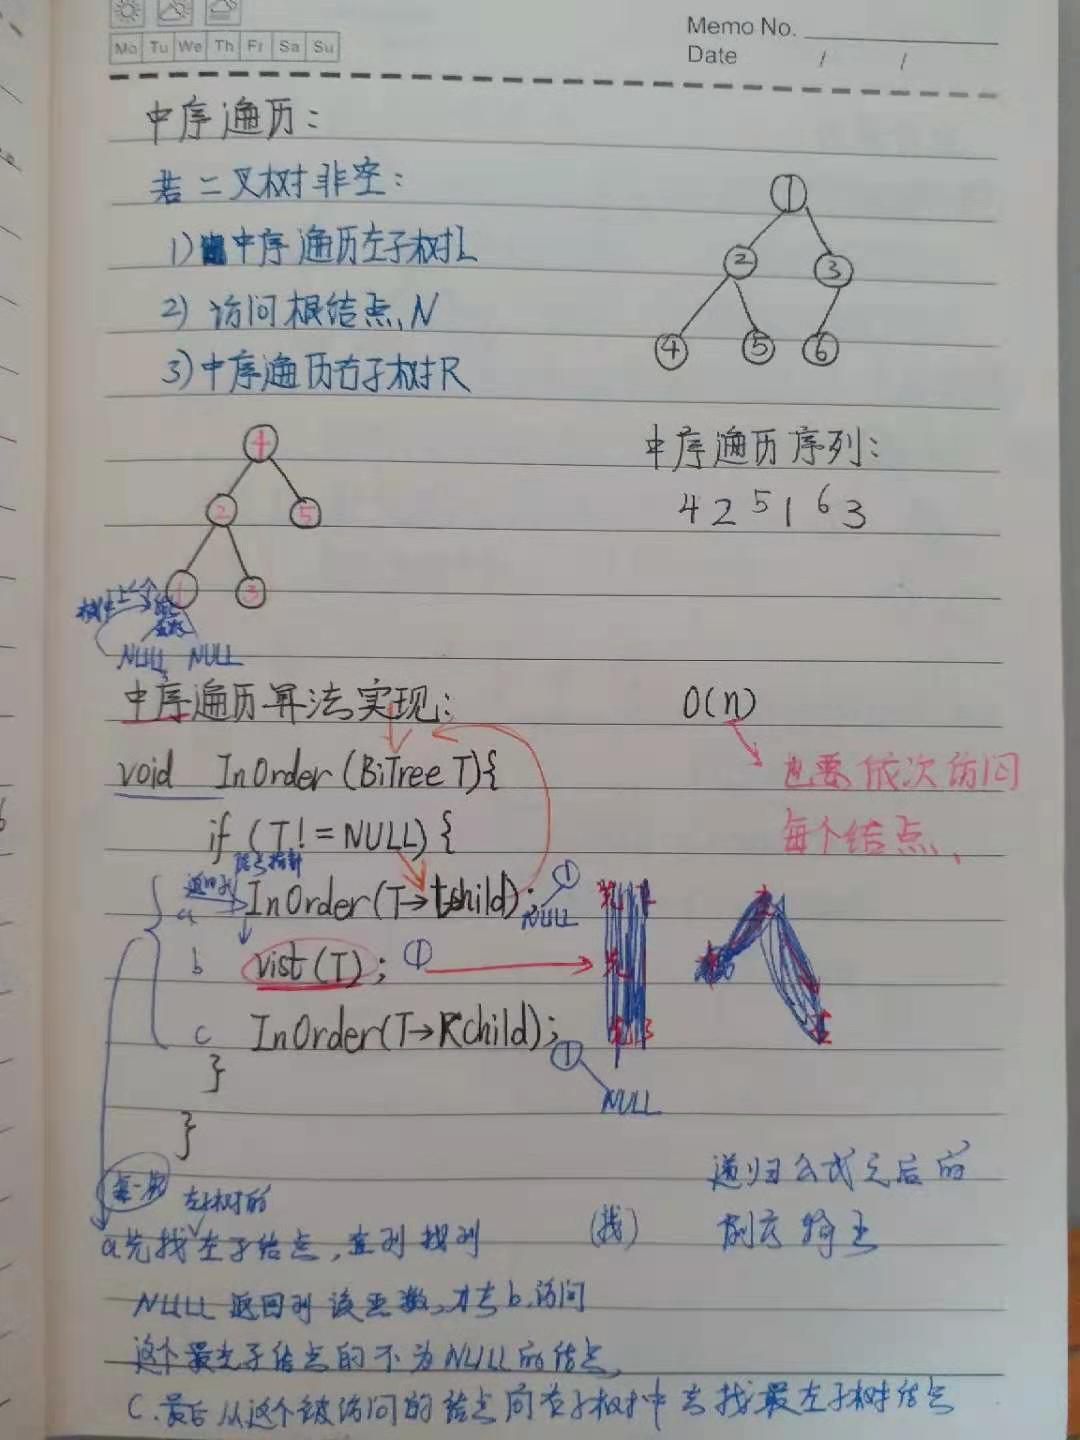 Memo No.
Mo Tu We Th Fr Sa Su
Date / /
中序遍历:
若二叉树非空:
1) 中序遍历左子树L
2) 访问根结点N
3) 中序遍历右子树R
1
2 3
4 5 6
中序遍历序列:
4 2 5 1 6 3
4
2 5
1 3
NULL NULL
中序遍历算法实现:
O(n)
也要依次访问
每个结点、
void InOrder (BiTree T){
if (T!=NULL) {
结点指针
a InOrder(T→lchild); ①
NULL
b vist(T); ①
c InOrder(T→Rchild);
①
NULL
}
}
递归公式之后的
左子树的
a先找左子结点,直到找到 (找)
NULL 返回到该函数,才去b.访问
这个最左子结点的不为NULL的结点,
C.最后从这个被访问的结点向右子树中去找最左子树结点